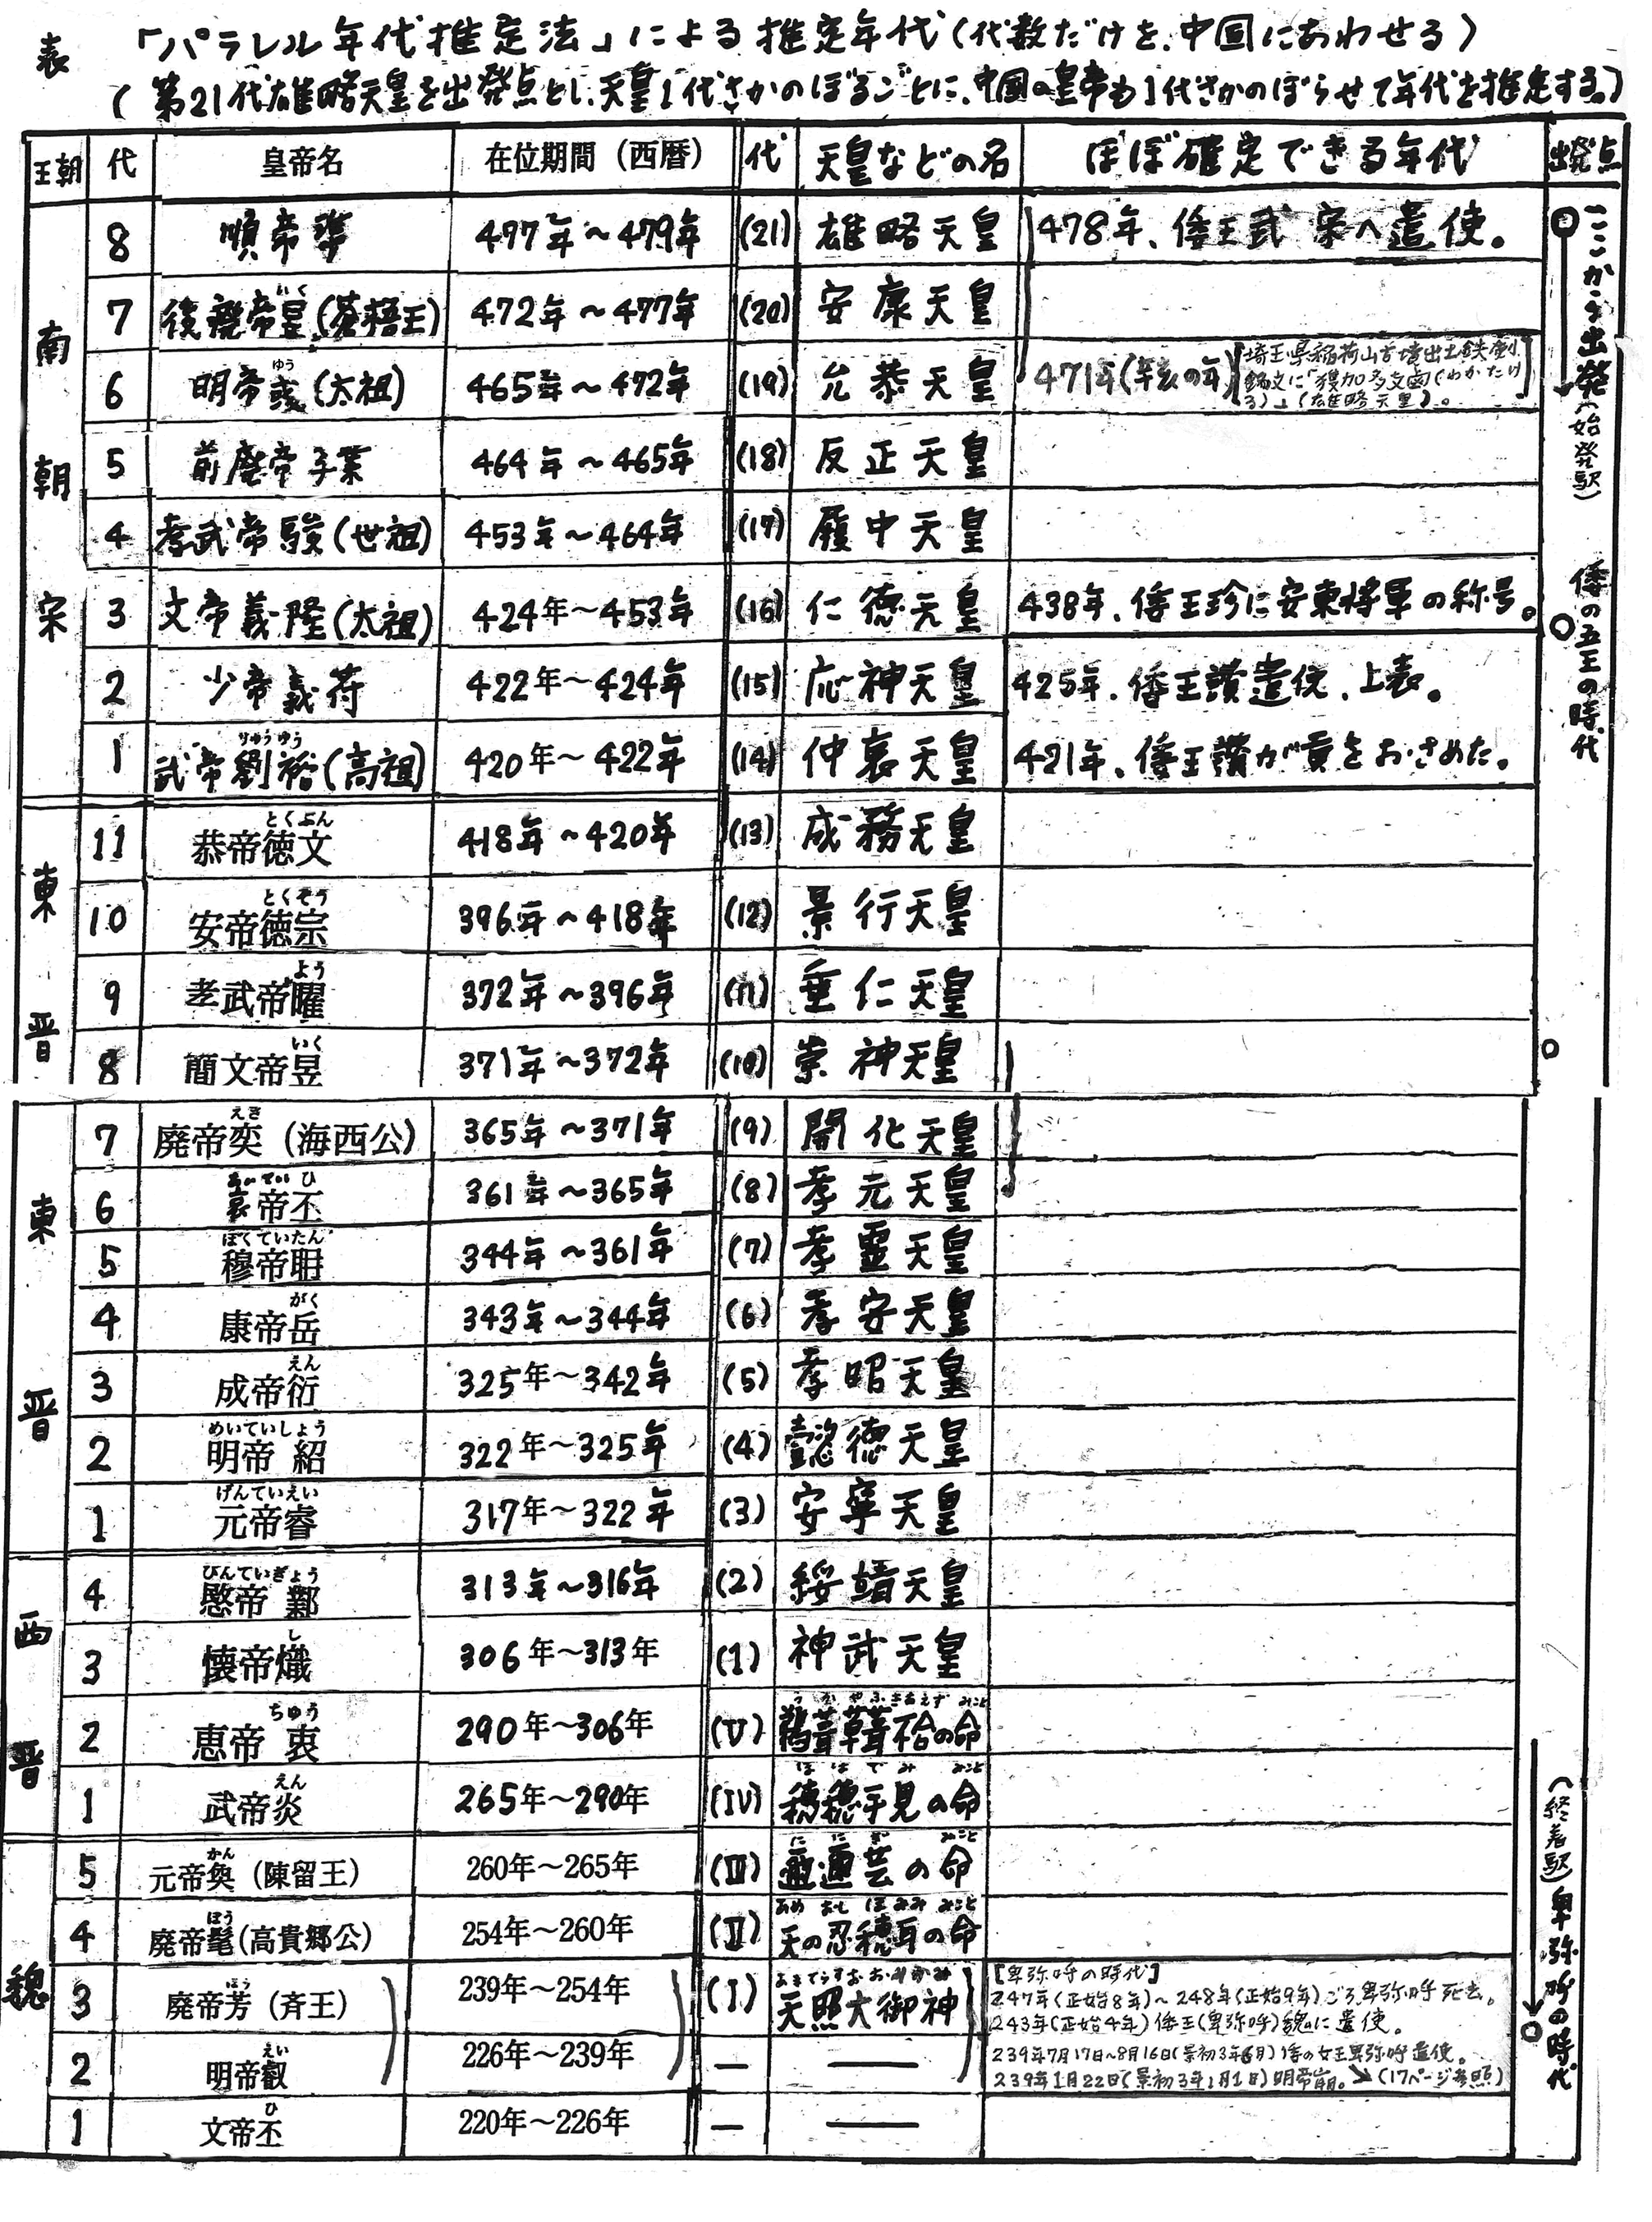 表 「パラレル年代推定法」による推定年代(代数だけを、中国にあわせる)
(第21代雄略天皇を出発点とし、天皇1代さかのぼるごとに、中国の皇帝も1代さかのぼらせて年代を推定する。)
王朝 代 皇帝名 在位期間(西暦) 代 天皇などの名 ほぼ確定できる年代 出発点
南朝 宋
8 順帝準 477年〜479年 (21) 雄略天皇 478年、倭王武 宋へ遣使。
7 後廃帝昱(いく)(蒼梧王) 472年〜477年 (20) 安康天皇
6 明帝彧(ゆう)(太祖) 465年〜472年 (19) 允恭天皇 471年(辛亥の年)
[埼玉県稲荷山古墳出土鉄剣
銘文に「獲加多支鹵(わかたけ
る)」(雄略天皇)。]
5 前廃帝子業 464年〜465年 (18) 反正天皇
4 孝武帝駿(世祖) 453年〜464年 (17) 履中天皇
3 文帝義隆(太祖) 424年〜453年 (16) 仁徳天皇 438年、倭王珍に安東将軍の称号。
2 少帝義符 422年〜424年 (15) 応神天皇 425年、倭王讃遣使、上表。
1 武帝劉裕(りゅうゆう)(高祖) 420年〜422年 (14) 仲哀天皇 421年、倭王讃が貢をおさめた。
ここから出発(始発駅) 倭の五王の時代
東晋
11 恭帝徳文(とくぶん) 418年〜420年 (13) 成務天皇
10 安帝徳宗(とくそう) 396年〜418年 (12) 景行天皇
9 孝武帝曜(よう) 372年〜396年 (11) 垂仁天皇
8 簡文帝昱(いく) 371年〜372年 (10) 崇神天皇
東晋
7 廃帝奕(えき)(海西公) 365年〜371年 (9) 開化天皇
6 哀帝丕(あいていひ) 361年〜365年 (8) 孝元天皇
5 穆帝聃(ぼくていたん) 344年〜361年 (7) 孝霊天皇
4 康帝岳(がく) 343年〜344年 (6) 孝安天皇
3 成帝衍(えん) 325年〜342年 (5) 孝昭天皇
2 明帝 紹(めいていしょう) 322年〜325年 (4) 懿徳天皇
1 元帝睿(げんていえい) 317年〜322年 (3) 安寧天皇
西晋
4 愍帝 鄴(びんていぎょう) 313年〜316年 (2) 綏靖天皇
3 懐帝熾(し) 306年〜313年 (1) 神武天皇
2 恵帝 衷(ちゅう) 290年〜306年 (V) 鵜葺草葺不合の命
1 武帝炎(えん) 265年〜290年 (IV) 穂穂手見の命(ほほでみ みこと)
魏
5 元帝奐(かん)(陳留王) 260年〜265年 (III) 邇邇芸の命(ににぎ みこと)
4 廃帝髦(ぼう)(高貴郷公) 254年〜260年 (II) 天の忍穂耳の命(あめ おし ほみみ みこと)
3 廃帝芳(ほう)(斉王) 239年〜254年 (I) 天照大御神(あまてらすおおみかみ)
[卑弥呼の時代]
247年(正始8年)〜248年(正始9年)ごろ卑弥呼死去。
243年(正始4年)倭王(卑弥呼)魏に遣使。
2 明帝叡(えい) 226年〜239年 — ——
239年7月17日〜8月16日(景初3年6月)倭の女王卑弥呼遣使。
239年1月22日(景初3年1月1日)明帝崩。↘(17ページ参照)
1 文帝丕(ひ) 220年〜226年 — ——
(終着駅)卑弥呼の時代